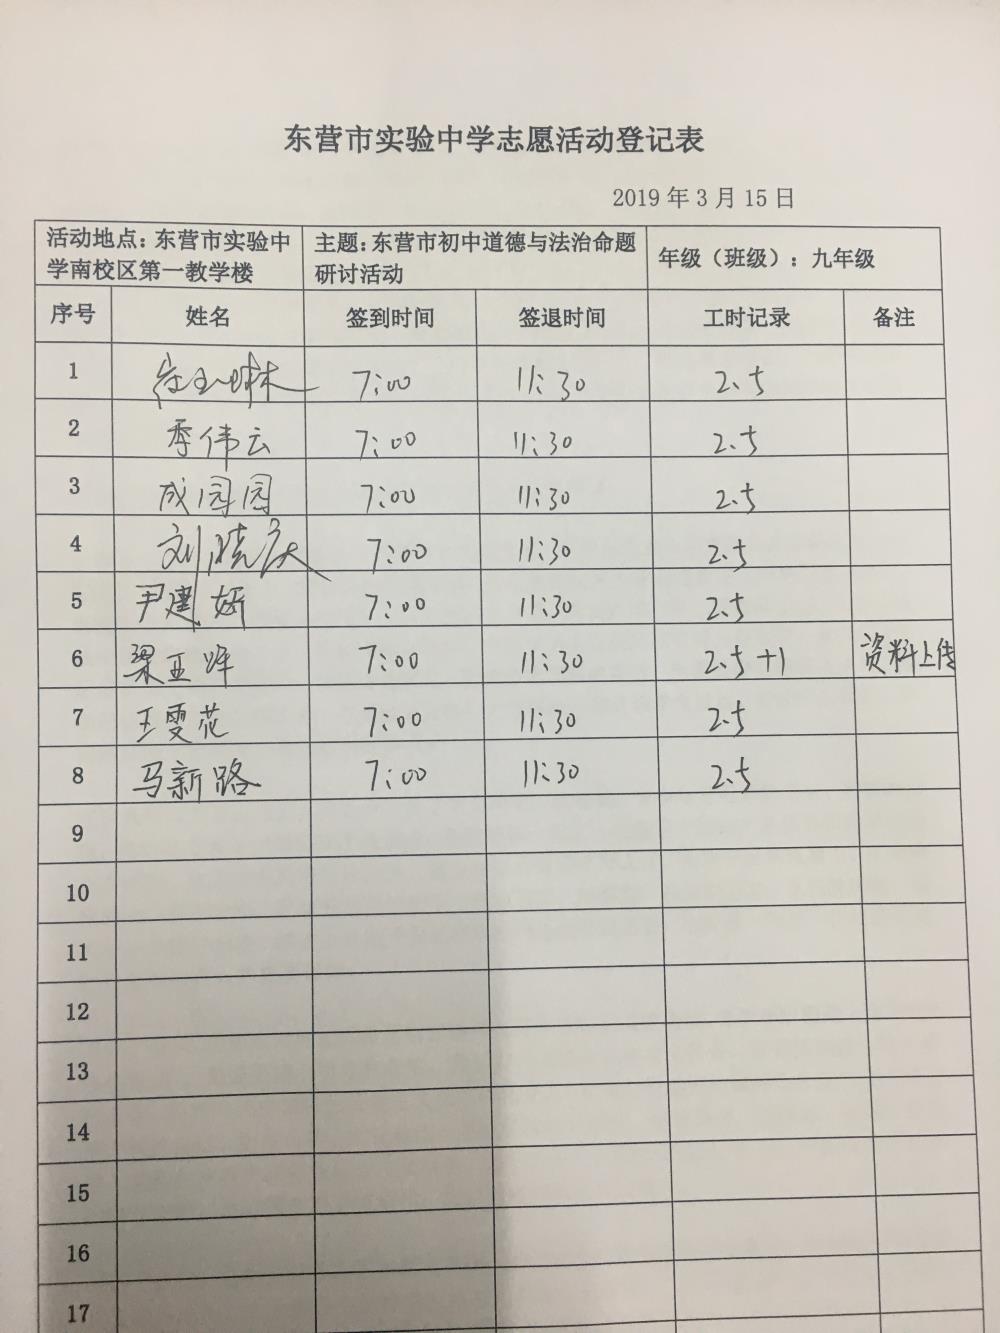 东营市实验中学志愿活动登记表
2019 年 3 月 15 日
活动地点：东营市实验中
学南校区第一教学楼
主题：东营市初中道德与法治命题
研讨活动
年级（班级）：九年级
序号 姓名 签到时间 签退时间 工时记录 备注
1 7:00 11:30 2.5
2 季伟云 7:00 11:30 2.5
3 成园园 7:00 11:30 2.5
4 刘晓庆 7:00 11:30 2.5
5 尹建娇 7:00 11:30 2.5
6 梁亚 7:00 11:30 2.5+1 资料上传
7 王雯花 7:00 11:30 2.5
8 马新路 7:00 11:30 2.5
9
10
11
12
13
14
15
16
17